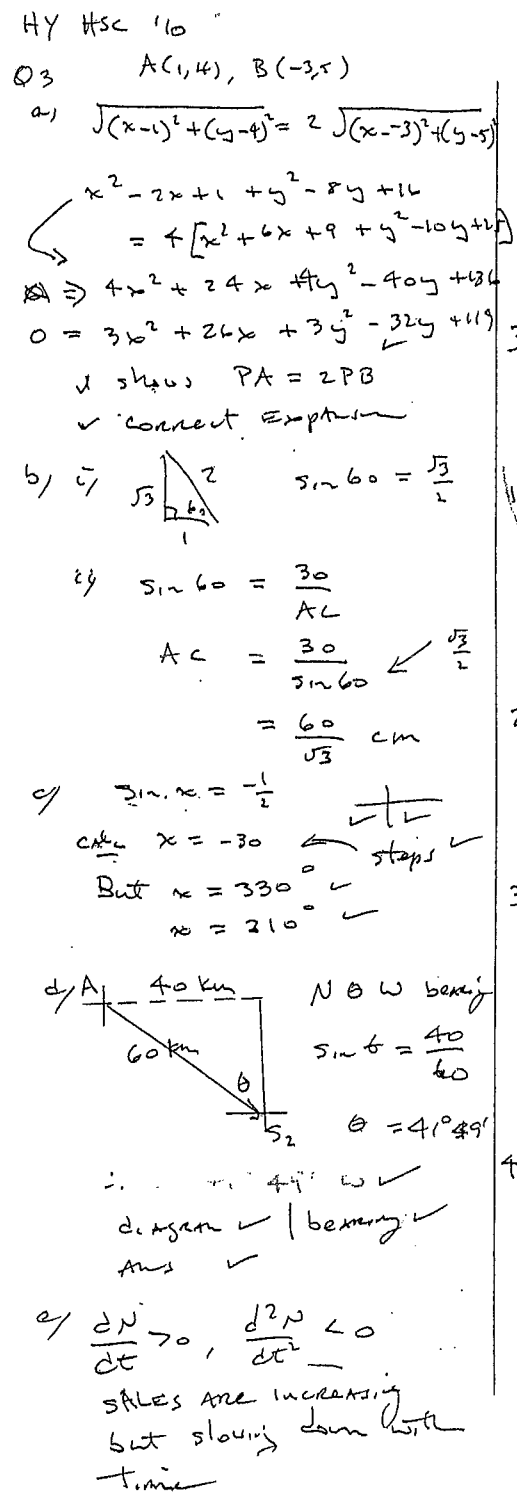 HY HSC '10
Q3 A(1,4), B(-3,5)
a) √((x-1)²+(y-4)²) = 2 √((x--3)²+(y-5)²)
x² - 2x + 1 + y² - 8y + 16
= 4 [x² + 6x + 9 + y² - 10y + 25]
⇒ 4x² + 24x + 4y² - 40y + 136
0 = 3x² + 26x + 3y² - 32y + 119 ✓ 3
✓ shows PA = 2PB
✓ correct Expansion
b) i) √3 2 60 1 sin 60 = √3/2
ii) sin 60 = 30/AC
AC = 30/sin 60 ← √3/2
= 60/√3 cm 2
c) sin x = -1/2
calc x = -30 ← steps ✓
But x = 330° ✓ 3
x = 210° ✓
d) A 40 km N θ W bearing
60 km θ sin θ = 40/60
S₂ θ = 41°49'
∴ 49' W ✓ 4
diagram ✓ | bearing ✓
Ans ✓
e) dN/dt > 0, d²N/dt² < 0
SALES ARE INCREASING
but slowing down with
time